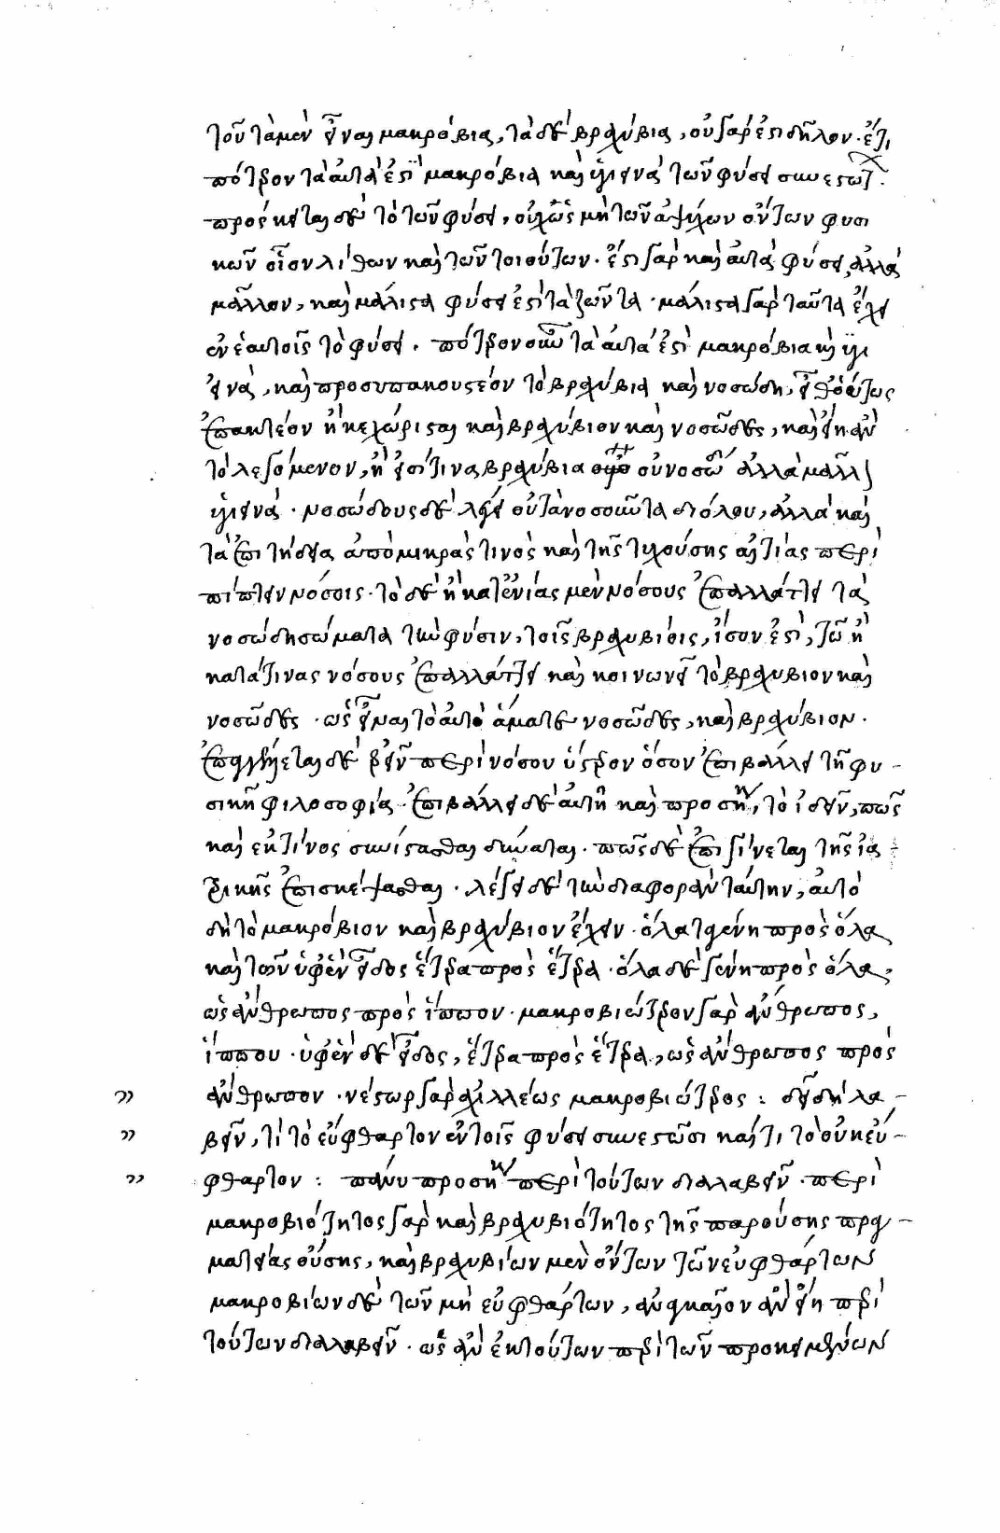 τοῦ τὰ μὲν εἶναι μακρόβια, τὰ δὲ βραχύβια, οὐ γάρ ἐστι δῆλον. ἔτι
πότερον τὰ αὐτά ἐστι μακρόβια καὶ ὑγιεινὰ τῶν φύσει συνεστώτ.
πρόσκειται δὲ τὸ τῶν φύσει, οὐχ ὡς μὴ τῶν ἀψύχων ὄντων φυσι
κῶν οἷον λίθων καὶ τῶν τοιούτων. ἔστι γὰρ καὶ αὐτὰ φύσει, ἀλλὰ
μᾶλλον, καὶ μάλιστα φύσει ἐστὶ τὰ ζῶντα. μάλιστα γὰρ ταῦτα ἔχει
ἐν ἑαυτοῖς τὸ φύσει. πότερον οὖν τὰ αὐτά ἐστι μακρόβια καὶ ὑγι
εινὰ, καὶ προσυπακουστέον τὸ βραχύβια καὶ νοσώδη, εἶθ' οὕτως
ἐπακτέον ἢ κεχώρισται καὶ βραχύβιον καὶ νοσῶδες, καὶ εἴη ἂν
τὸ λεγόμενον, ἢ εἰσί τινα βραχύβια οὐ νοσώδη ἀλλὰ μᾶλλ
ὑγιεινά. νοσώδους δὲ λέγει οὐ τὰ νοσοῦντα διόλου, ἀλλὰ καὶ
τὰ ἐπιτήδεια ἀπὸ μικρᾶς τινος καὶ τῆς τυχούσης αἰτίας περι
πίπτειν νόσοις. τὸ δὲ ἢ κατ' ἐνίας μὲν νόσους ἐπαλλάττει τὰ
νοσώδη σώματα τὴν φύσιν, τοῖς βραχυβίοις, ἴσον ἐστὶ, τῶ ἢ
κατά τινας νόσους ἐπαλλάττει καὶ κοινωνεῖ τὸ βραχύβιον καὶ
νοσῶδες. ὡς εἶναι τὸ αὐτὸ ἅμα τε νοσῶδες, καὶ βραχύβιον.
ἐπαγγέλλεται δὲ ἐρεῖν περὶ νόσου ὕστερον ὅσον ἐπιβάλλει τῇ φυ-
σικῇ φιλοσοφίᾳ. ἐπιβάλλει δὲ αὐτῇ καὶ προσήκει, τὸ ἰδεῖν, πῶς
καὶ ἐκ τίνος συνίστασθαι δύναται. πῶς δὲ ἐπιγίνεται τῆς ἰα-
τρικῆς ἐπισκέψασθαι. λέγει δὲ τὴν διαφορὰν ταύτην, αὐτὸ
δὴ τὸ μακρόβιον καὶ βραχύβιον ἔχειν. ὅλα τε γένη πρὸς ὅλα,
καὶ τῶν ὑφ' ἓν εἶδος ἕτερα πρὸς ἕτερα. ὅλα δὲ γένη πρὸς ὅλα,
ὡς ἄνθρωπος πρὸς ἵππον. μακροβιώτερον γὰρ ἄνθρωπος,
ἵππου. ὑφ' ἓν δὲ εἶδος, ἕτερα πρὸς ἕτερα, ὡς ἄνθρωπος πρὸς
ἄνθρωπον. νέστωρ γὰρ ἀχιλλέως μακροβιώτερος: δεῖ δὴ λα-
βεῖν, τί τὸ εὔφθαρτον ἐν τοῖς φύσει συνεστῶσι καὶ τί τὸ οὐκ εὔ-
φθαρτον: πάνυ προσήκει περὶ τούτων διαλαβεῖν. περὶ
μακροβιότητος γὰρ καὶ βραχυβιότητος τῆς παρούσης πρα-
ματείας οὔσης, καὶ βραχυβίων μὲν ὄντων τῶν εὐφθάρτων
μακροβίων δὲ τῶν μὴ εὐφθάρτων, ἀναγκαῖον ἂν εἴη περὶ
τούτων διαλαβεῖν. ὡς ἂν ἐκ τούτων περὶ τῶν προκειμένων